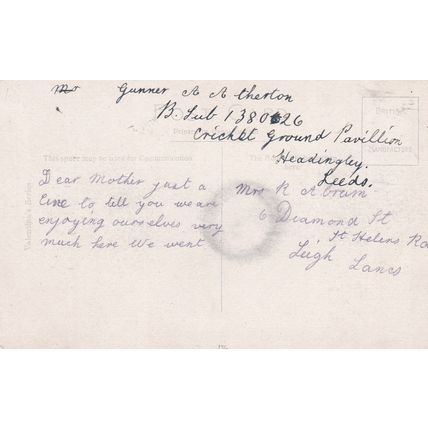 Mr Gunner A A therton
B. Sub 1380626
Cricket Ground Pavillion
Headingley.
Leeds.
This space may be used for Communication
Dear Mother just a
line to tell you we are
enjoying ourselves very
much here We went
Mrs R Abram
6 Diamond St
St Helens Rd
Leigh Lancs